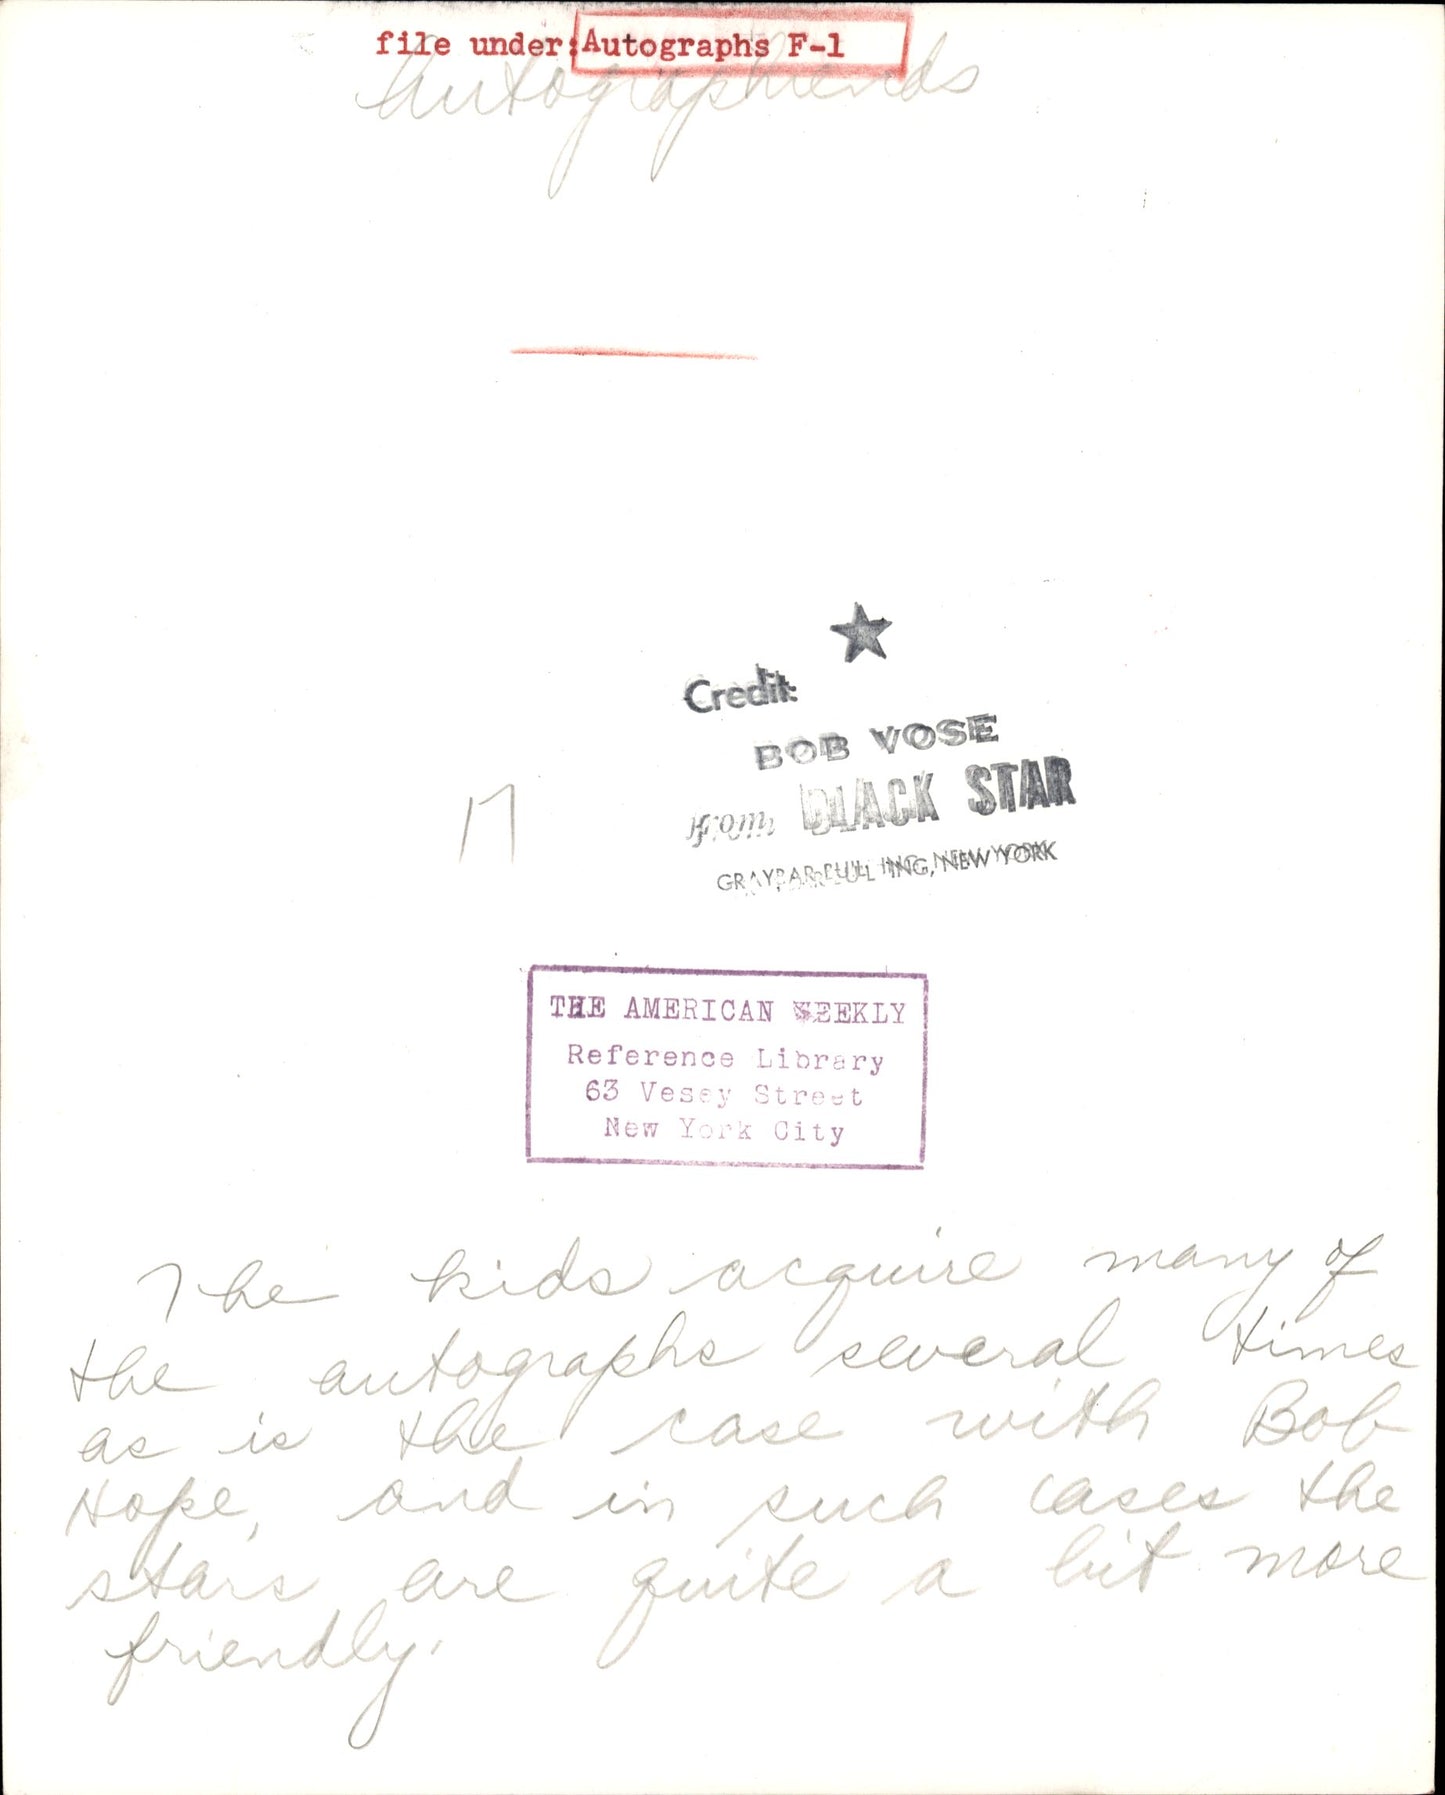 file under: Autographs F-1
Autograph Fiends
Credit:
BOB VOSE
from BLACK STAR
GRAYBAR BUILDING, NEW YORK
17
THE AMERICAN WEEKLY
Reference Library
63 Vesey Street
New York City
The kids acquire many of
the autographs several times
as is the case with Bob
Hope, and in such cases the
stars are quite a bit more
friendly.